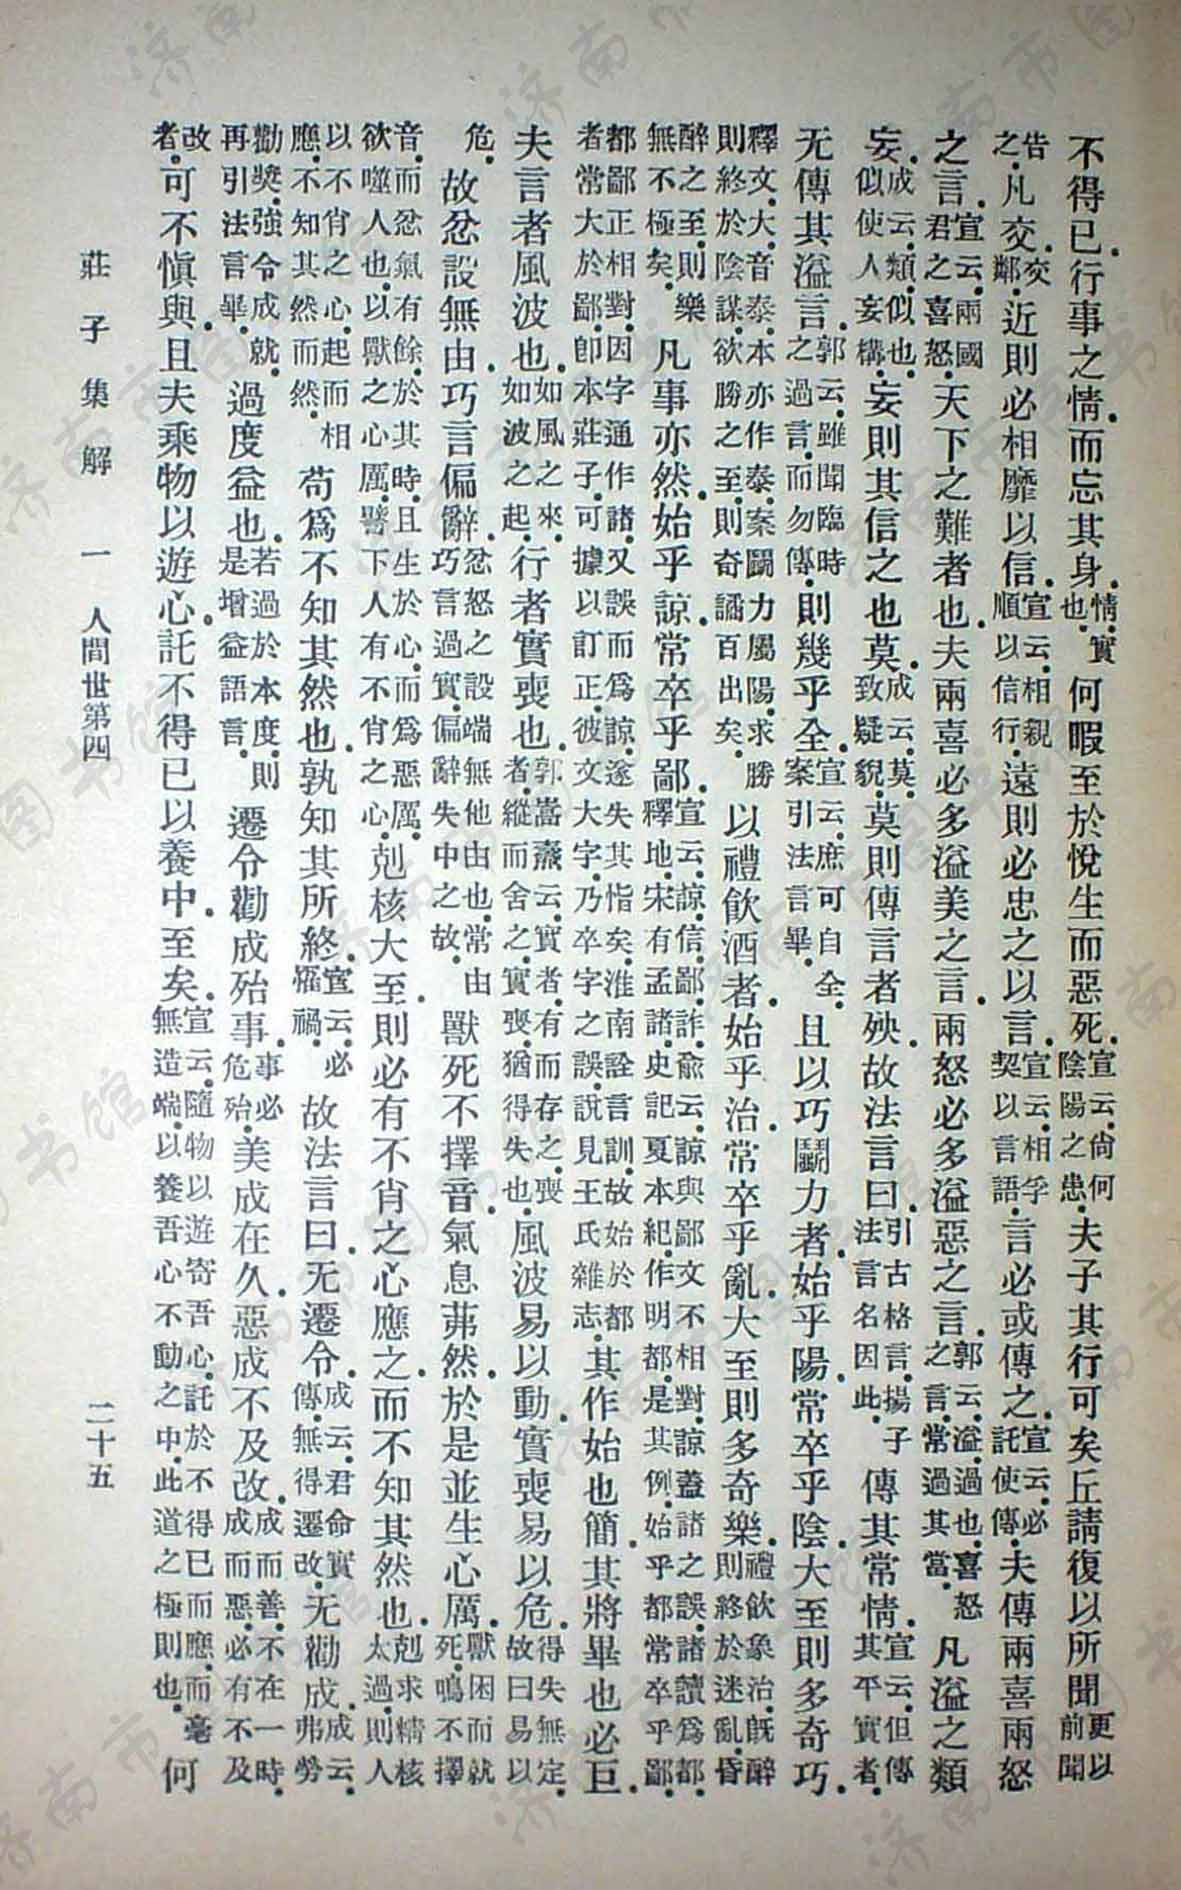 不得已。行事之情。而忘其身。情。實也。何暇至於悅生而惡死。宣云。尙何陰陽之患。夫子其行可矣丘請復以所聞更以前聞
告之。凡交。交鄰。近則必相靡以信。宣云。相親順以信行。遠則必忠之以言。宣云。相孚契以言語。言必或傳之。宣云。必託使傳。夫傳兩喜兩怒
之言。宣云。兩國君之喜怒。天下之難者也。夫兩喜必多溢美之言。兩怒必多溢惡之言。郭云。溢過也。喜怒之言。常過其當。凡溢之類
妄。成云。類似也。似使人妄構。妄則其信之也莫。成云。莫。致疑貌。莫則傳言者殃。故法言曰。引古格言。揚子法言名因此。傳其常情。宣云。但傳其平實者。
无傳其溢言。郭云。雖聞臨時之過言而勿傳。則幾乎全。宣云。庶可自全。案引法言畢。且以巧鬭力者。始乎陽。常卒乎陰。大至則多奇巧。
釋文。大音泰。本亦作泰。案鬭力屬陽。求勝則終於陰謀。欲勝之至。則奇譎百出矣。以禮飲酒者。始乎治。常卒乎亂。大至則多奇樂。禮飲象治。旣醉則終於迷亂。昏
醉之至。則樂無不極矣。凡事亦然。始乎諒。常卒乎鄙。宣云。諒。信。鄙。詐。俞云。諒與鄙文不相對。諒蓋諸之誤。諸讀爲都。釋地宋有孟諸。史記夏本紀作明都。是其例。始乎都常卒乎鄙。
都鄙正相對。因字通作諸。又誤而爲諒。遂失其恉矣。淮南詮言訓。故始於都者常大於鄙。卽本莊子。可據以訂正。彼文大字。乃卒字之誤。說見王氏雜志。其作始也簡。其將畢也必巨。
夫言者風波也。如風之來。如波之起。行者實喪也。郭嵩燾云。實者有而存之。喪者縱而舍之。實喪猶得失也。風波易以動。實喪易以危。得失無定。故曰易以
危。故忿設無由。巧言偏辭。忿怒之設端無他由也。常由巧言過實。偏辭失中之故。獸死不擇音。氣息茀然。於是並生心厲。獸困而就死。鳴不擇
音。而忿氣有餘。於其時。且生於心。而爲惡厲。欲噬人也。以獸之心厲。譬下人有不肖之心。剋核大至。則必有不肖之心應之。而不知其然也。剋求精核太過。則人
以不肖之心。起而相應。不知其然而然。苟爲不知其然也。孰知其所終。宣云。必罹禍。故法言曰。无遷令。成云。君命實傳。無得遷改。无勸成。成云。弗勞
勸獎。強令成就。再引法言畢。過度益也。若過於本度。則是增益語言。遷令勸成殆事。事必危殆。美成在久。惡成不及改。成而善。不在一時。成而惡。必有不及
改者。可不愼與。且夫乘物以遊心。託不得已以養中。至矣。宣云。隨物以遊寄吾心。託於不得已而應。而毫無造端。以養吾心不動之中。此道之極則也。何
莊子集解　一　人間世第四　二十五